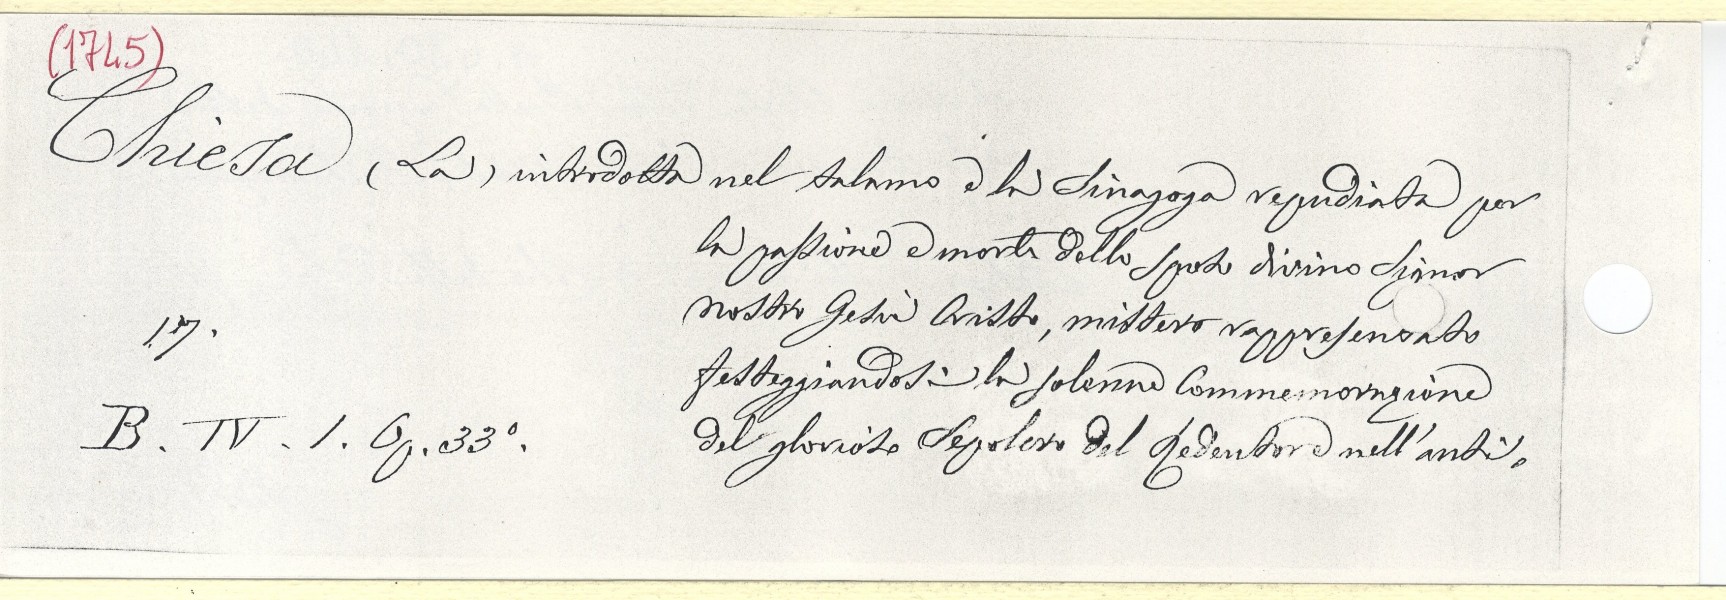 (1745)
Chiesa (La) introdotta nel talamo e la Sinagoga repudiata per
la passione e morte dello sposo divino Signor
nostro Gesù Cristo, mistero rappresentato
festeggiandosi la solenne Commemorazione
del glorioso Sepolcro del Redentore nell'anti.
17.
B. IV. 1. Op. 33°.